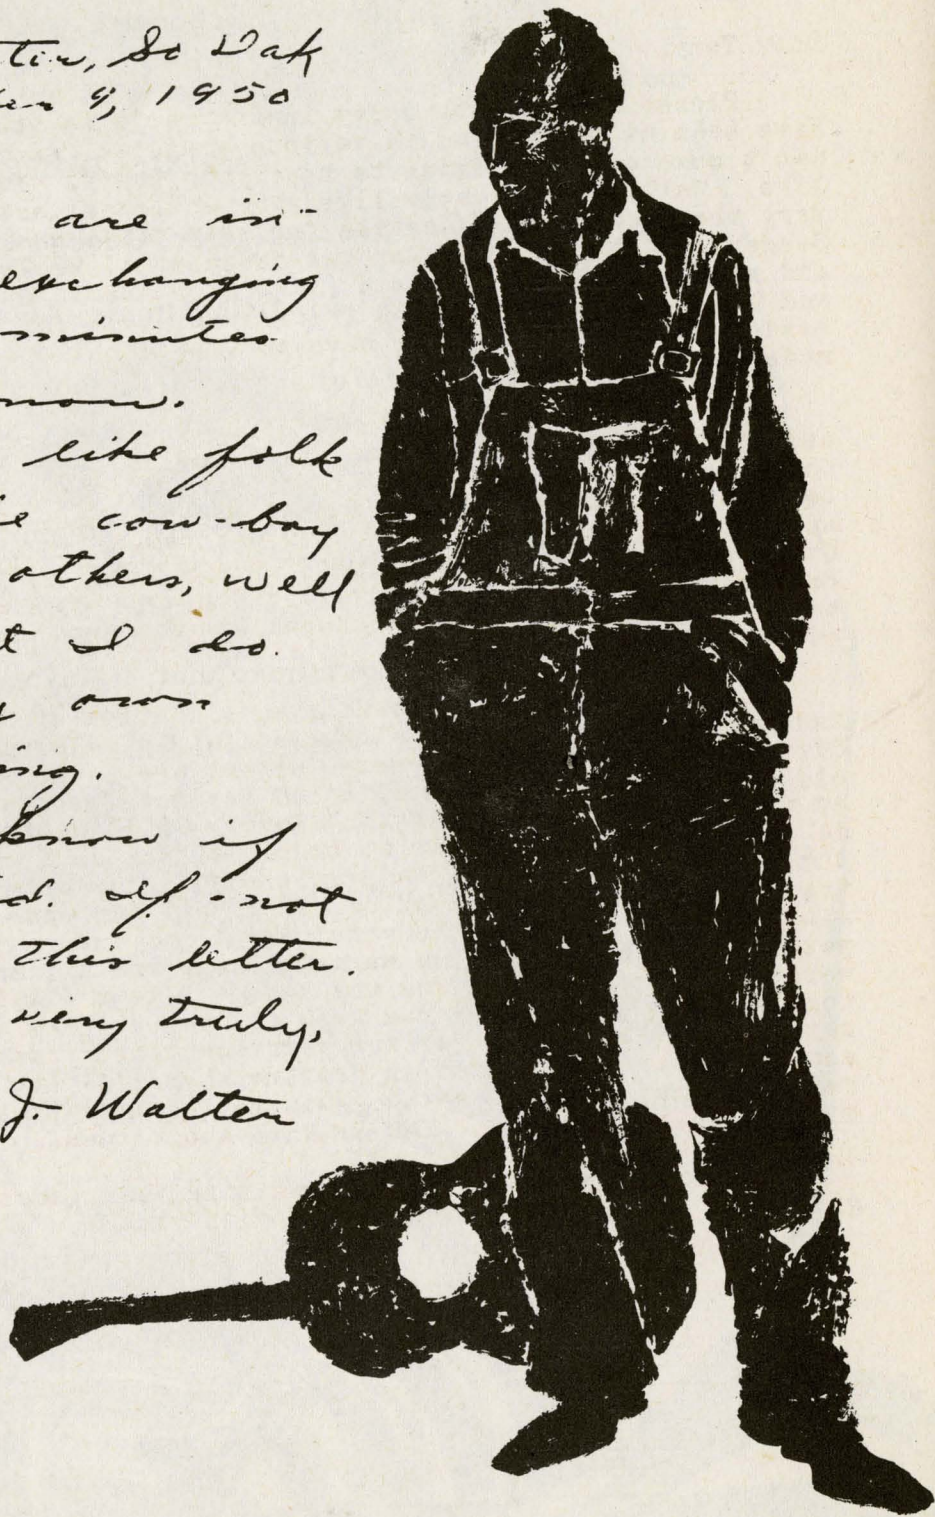 tin, So Dak
ber 9, 1950
are in-
exchanging
minutes
now.
like folk
cow-boy
others, well
t I do.
own
ing.
know if
d. If not
this letter.
very truly,
J. Walter